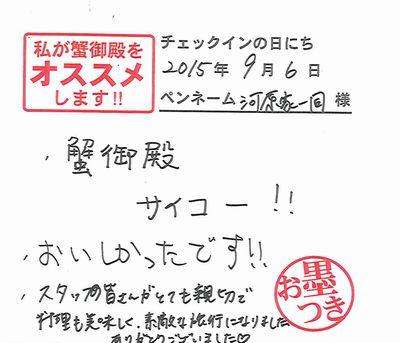 私が蟹御殿を
オススメ
します!!
チェックインの日にち
2015年 9月 6日
ペンネーム 河原家一同 様
・蟹御殿
サイコー!!
・おいしかったです!!
・スタッフの皆さんがとても親切で
料理も美味しく、素敵な旅行になりました
ありがとうございました♡
お墨つき